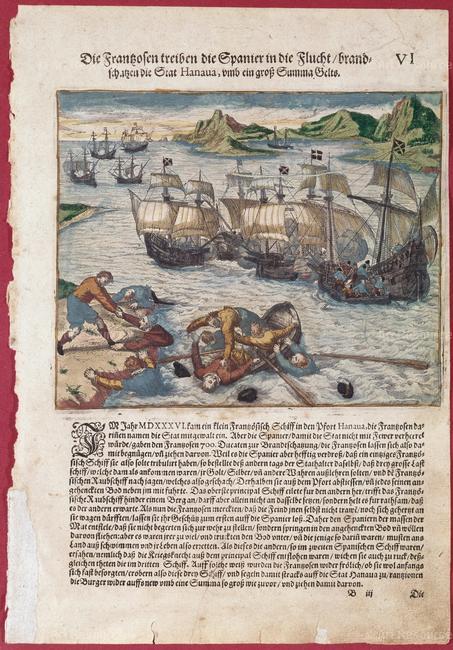 Die Frantzosen treiben die Spanier in die Flucht / brand-
schatzen die Stat Hanaua, vmb ein groß Summa Gelts.
VI
IM Jahr MDXXXVI. kam ein klein Frantzösisch Schiff in den Pfort Hanaua, die Frantzosen da-
rinnen namen die Stat mit gewalt ein. Aber die Spanier / damit die Stat nicht mit Fewer verheret
würde / gaben den Frantzosen 700. Ducaten zur Brandschatzung, die Frantzosen liessen sich also da-
mit begnügen / vñ ziehen darvon. Weil es die Spanier aber hefftig verdroß / daß ein einziges Frantzö-
sisch Schiff sie also solte haben / so den andern tags der Stathalter daselbst / daß drey grosse Last
schiff / welche dann als ankommen waren / mit Silber / vñ andern Wahren solten / vnd dẽ Frantzö-
sischen Raubschiff nach jagen / welches also geschach / Derhalben sie auß dem Pfort vñ jedes seinen an-
gehenckten Bod neben jm mit fuhrte. Das oberste principal Schiff eilete fur den andern her / trifft das Frantzö-
sisch Raubschiff hinder einem Berg an / darff aber allein nicht an dasselbe setzen / sondern helt es fur rathsam / daß
es der andern erwarte. Als nun die Frantzosen merckten / daß die Feind jnen selbst nicht noch sich gehertzt an
sie wagen dürfften / lassen sie jhr Geschütz zum ersten auff die Spanier loß. Aber den Spaniern der massen der
Mut entfiele / daß sie nicht begerten sich zur wehr zu stellen / sondern springen in den angehenckten Bod vñ wöllen
darvon fliehen: aber es waren jrer zu viel / vnd truckten den Bod vnter / vñ die jenige so darin waren / musten ans
Land auß schwimmen vnd jr leben also retten. Als dieses die andern / so im zweiten Spanischen Schiff waren /
ersahen / nemlich daß die Kriegsknecht auß dem principal Schiff entflohen waren / wichen sie auch zu ruck / deß-
gleichen theten die im dritten Schiff. Auff solche weiß wurden die Frantzosen wider frölich / ob sie wol anfangs
sich fast besorgten / erobern also diese drey Schiff / vnd segeln damit stracks auff die Stat Hanaua zu / rantzionen
die Burger wider auffs new vmb eine Summa so groß wie zuvor / vnd ziehen damit darvon.
B iij
Die